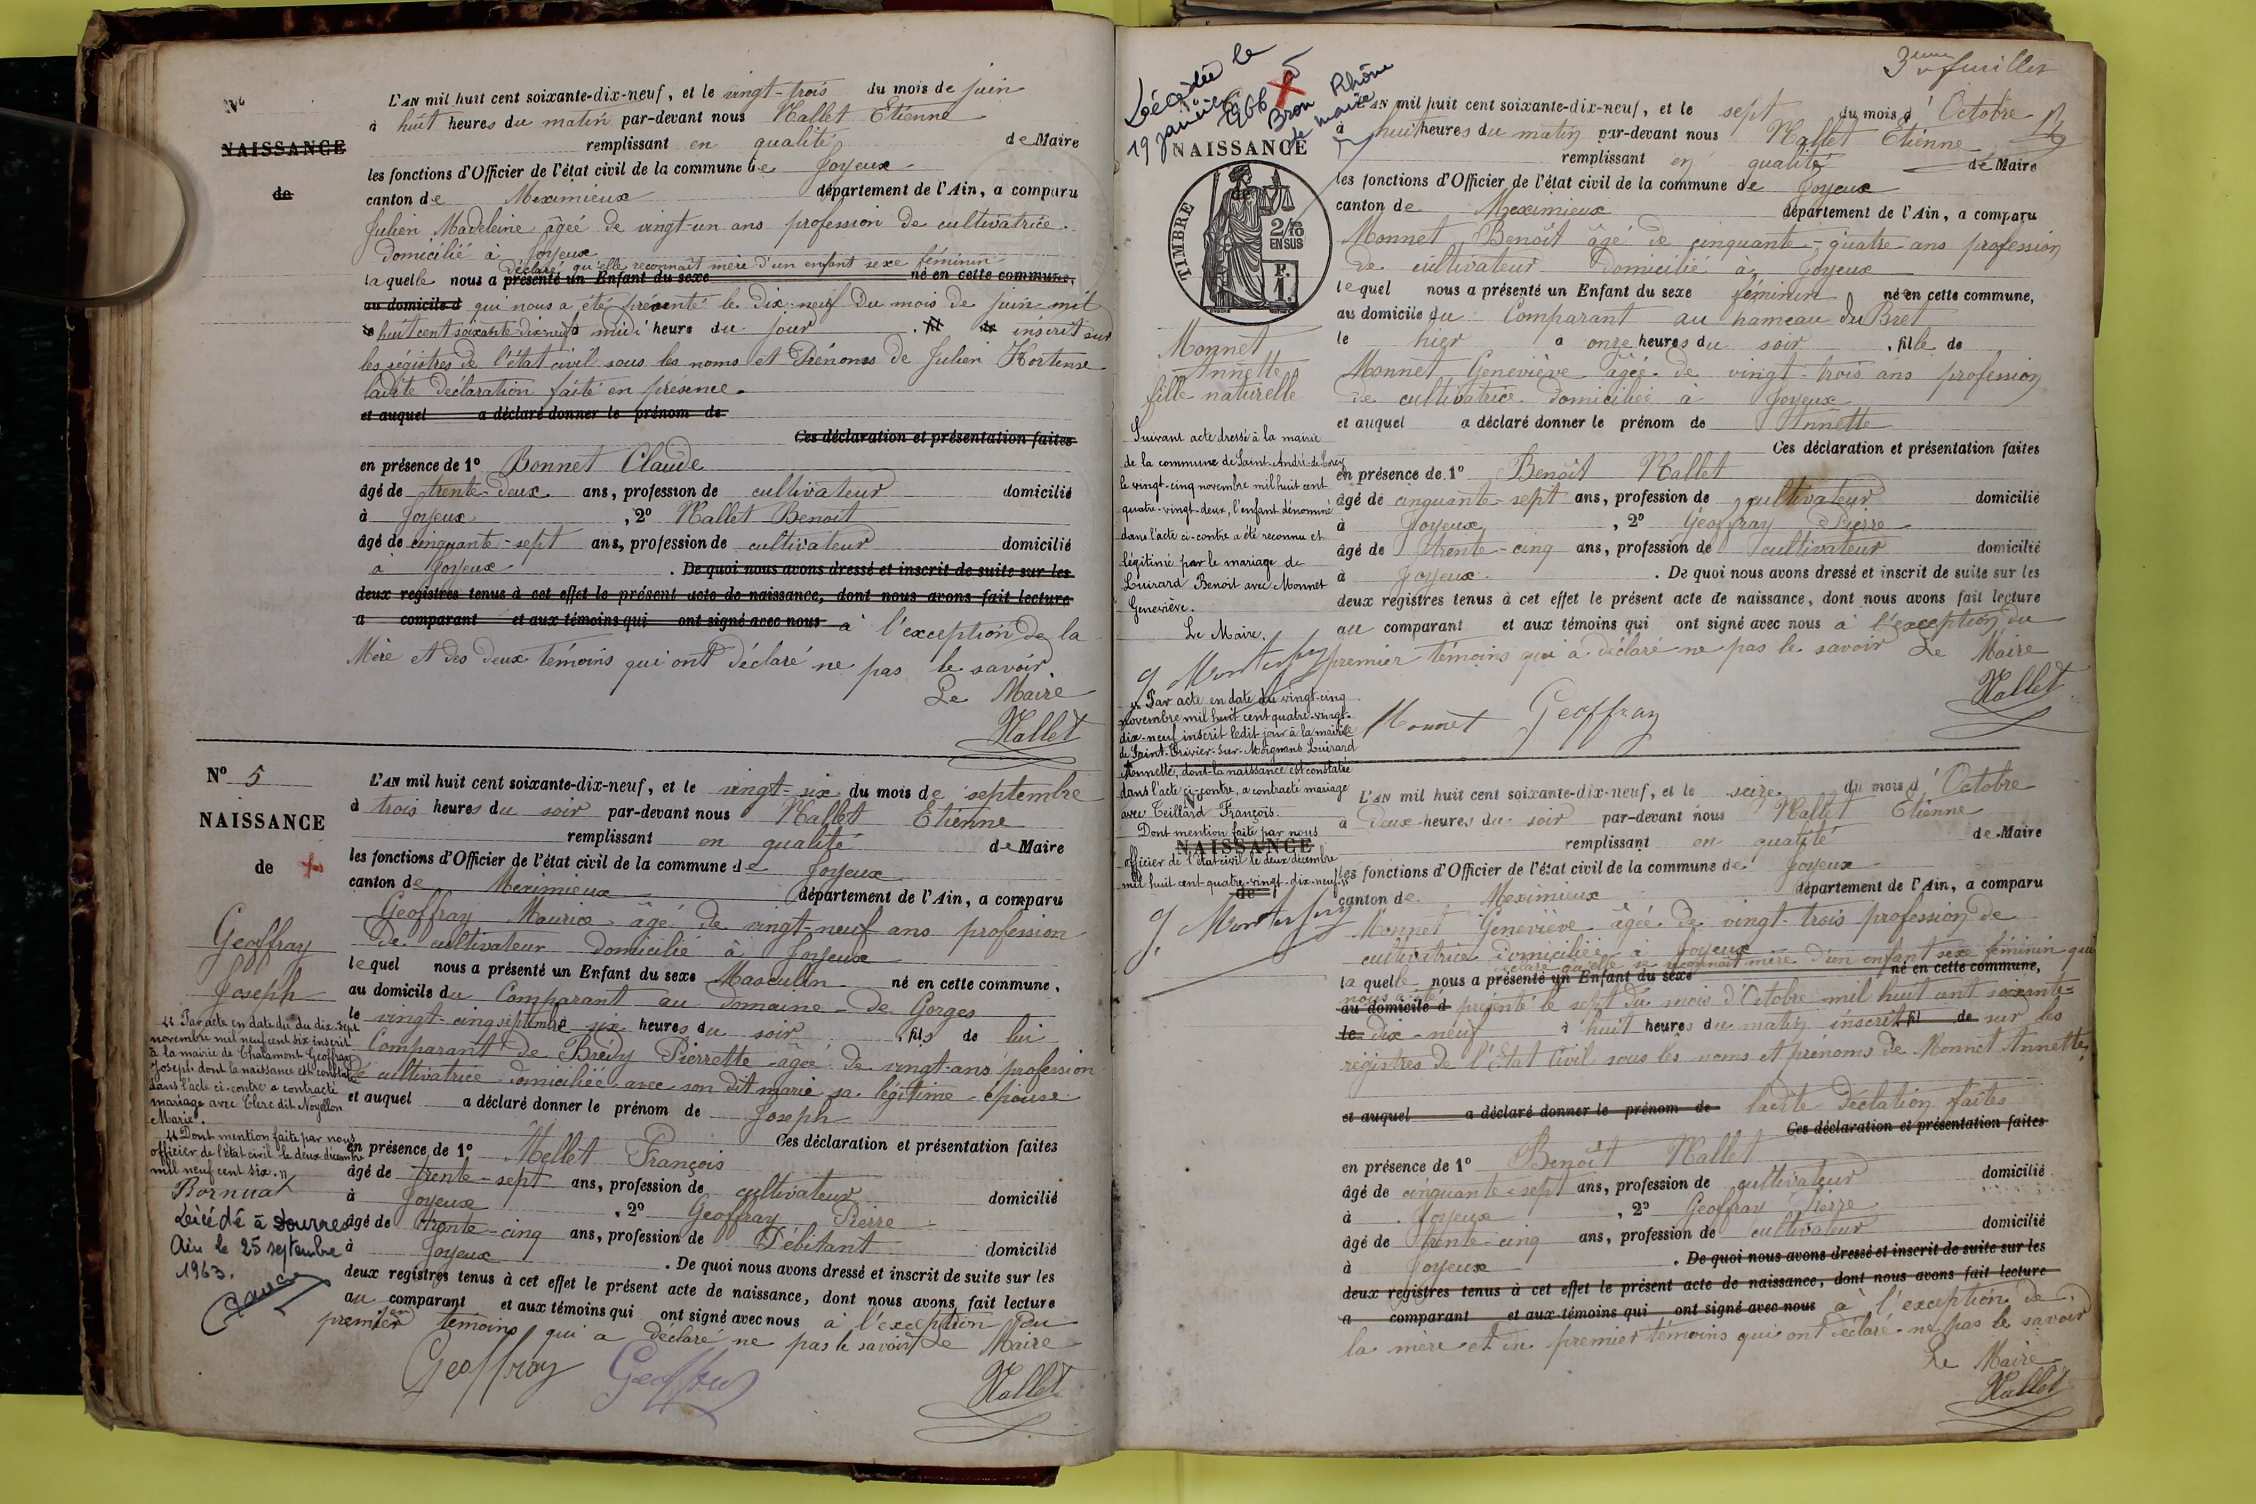 N°
NAISSANCE
de
L'AN mil huit cent soixante-dix-neuf, et le vingt-trois du mois de juin
à huit heures du matin par-devant nous Mallet Etienne
remplissant en qualité de Maire
les fonctions d'Officier de l'état civil de la commune de Joyeux
canton de Meximieux département de l'Ain, a comparu
Julien Madeleine âgée de vingt-un ans profession de cultivatrice
domicilié à Joyeux
déclaré qu'elle reconnait mère d'un enfant sexe féminin
laquelle nous a présenté un Enfant du sexe né en cette commune,
au domicile d qui nous a été présenté le dix-neuf du mois de juin mil
le huit cent soixante-dix-neuf à midi heure du jour , fil de inscrit sur
les régistres de l'état civil sous les noms et Prénoms de Julien Hortense
ladite déclaration faite en présence
et auquel a déclaré donner le prénom de
Ces déclaration et présentation faites
en présence de 1° Bonnet Claude
âgé de trente-deux ans, profession de cultivateur domicilié
à Joyeux , 2° Mallet Benoit
âgé de cinquante-sept ans, profession de cultivateur domicilié
à Joyeux . De quoi nous avons dressé et inscrit de suite sur les
deux registres tenus à cet effet le présent acte de naissance, dont nous avons fait lecture
a comparant et aux témoins qui ont signé avec nous à l'exception de la
Mère et des deux témoins qui ont déclaré ne pas le savoir
Le Maire
Mallet
N° 5
NAISSANCE
de
Geoffray
Joseph
" Par acte en date du du dix-sept
novembre mil neuf cent six inscrit
à la mairie de Chalamont Geoffray
Joseph dont la naissance est constatée
dans l'acte ci-contre a contracté
mariage avec Clerc dit Noyellon
Marie.
" Dont mention faite par nous
officier de l'état civil le deux décembre
mil neuf cent six. "
Bornuat
Décédé à Dourres
Ain le 25 septembre
1963.
L'AN mil huit cent soixante-dix-neuf, et le vingt-six du mois de septembre
à trois heures du soir par-devant nous Mallet Etienne
remplissant en qualité de Maire
les fonctions d'Officier de l'état civil de la commune de Joyeux
canton de Meximieux département de l'Ain, a comparu
Geoffray Maurice âgé de vingt-neuf ans profession
de cultivateur domicilié à Joyeux
lequel nous a présenté un Enfant du sexe Masculin né en cette commune,
au domicile du Comparant au domaine de Gorges
le vingt-cinq septembre à six heures du soir , fils de lui
Comparant de Brédy Pierrette âgée de vingt-ans profession
de cultivatrice domiciliée avec son dit marie sa légitime épouse
et auquel a déclaré donner le prénom de Joseph
Ces déclaration et présentation faites
en présence de 1° Mellet François
âgé de trente-sept ans, profession de cultivateur domicilié
à Joyeux , 2° Geoffray Pierre
âgé de trente-cinq ans, profession de Débitant domicilié
à Joyeux . De quoi nous avons dressé et inscrit de suite sur les
deux registres tenus à cet effet le présent acte de naissance, dont nous avons fait lecture
au comparant et aux témoins qui ont signé avec nous à l'exception du
premier témoins qui a déclaré ne pas le savoir Le Maire
Geoffray Geoffray
Mallet
3ème feuillet
Décédée le
19 janvier 1966 à
Bron Rhône
le maire
NAISSANCE
de
TIMBRE
2/10
EN SUS
F.
1.
Monnet
Annette
fille naturelle
Suivant acte dressé à la mairie
de la commune de Saint-André-de-Corcy
le vingt-cinq novembre mil huit cent
quatre-vingt-deux, l'enfant dénommé
dans l'acte ci-contre a été reconnu et
légitimé par le mariage de
Luirard Benoit avec Monnet
Geneviève.
Le Maire.
" Par acte en date du vingt-cinq
novembre mil huit cent quatre-vingt-
dix-neuf inscrit ledit jour à la mairie
de Saint-Trivier-sur-Moignans Luirard
Annette, dont la naissance est constatée
dans l'acte ci-contre, a contracté mariage
avec Teillard François.
Dont mention faite par nous
officier de l'état civil le deux décembre
mil huit cent quatre-vingt-dix-neuf. "
L'AN mil huit cent soixante-dix-neuf, et le sept du mois d'Octobre
à huit heures du matin par-devant nous Mallet Etienne
remplissant en qualité de Maire
les fonctions d'Officier de l'état civil de la commune de Joyeux
canton de Meximieux département de l'Ain, a comparu
Monnet Benoît âgé de cinquante-quatre ans profession
de cultivateur domicilié à Joyeux
lequel nous a présenté un Enfant du sexe féminin né en cette commune,
au domicile du Comparant au hameau du Bret
le hier à onze heures du soir , fille de
Monnet Geneviève âgée de vingt-trois ans profession
de cultivatrice domiciliée à Joyeux
et auquel a déclaré donner le prénom de Annette
Ces déclaration et présentation faites
en présence de 1° Benoît Mallet
âgé de cinquante-sept ans, profession de cultivateur domicilié
à Joyeux , 2° Geoffray Pierre
âgé de trente-cinq ans, profession de cultivateur domicilié
à Joyeux . De quoi nous avons dressé et inscrit de suite sur les
deux registres tenus à cet effet le présent acte de naissance, dont nous avons fait lecture
au comparant et aux témoins qui ont signé avec nous à l'exception du
premier témoins qui a déclaré ne pas le savoir Le Maire
Mallet
Monnet Geoffray
N°
NAISSANCE
de
L'AN mil huit cent soixante-dix-neuf, et le seize du mois d'Octobre
à deux heures du soir par-devant nous Mallet Etienne
remplissant en qualité de Maire
les fonctions d'Officier de l'état civil de la commune de Joyeux
canton de Meximieux département de l'Ain, a comparu
Monnet Geneviève âgée de vingt-trois profession de
cultivatrice domiciliée à Joyeux
déclaré qu'elle se reconnait mère d'un enfant sexe féminin qui
laquelle nous a présenté un Enfant du sexe né en cette commune,
nous a été
au domicile d présenté le sept du mois d'Octobre mil huit cent soixante-
le dix-neuf à huit heures du matin inscrit fil de sur les
régistres de l'Etat Civil sous les noms et prénoms de Monnet Annette
et auquel a déclaré donner le prénom de ladite Déclation faites
Ces déclaration et présentation faites
en présence de 1° Benoît Mallet
âgé de cinquante-sept ans, profession de cultivateur domicilié
à Joyeux , 2° Geoffray Pierre
âgé de trente-cinq ans, profession de cultivateur domicilié
à Joyeux . De quoi nous avons dressé et inscrit de suite sur les
deux registres tenus à cet effet le présent acte de naissance, dont nous avons fait lecture
a comparant et aux témoins qui ont signé avec nous à l'exception de
la mère et du premier témoins qui ont déclaré ne pas le savoir
Le Maire
Mallet